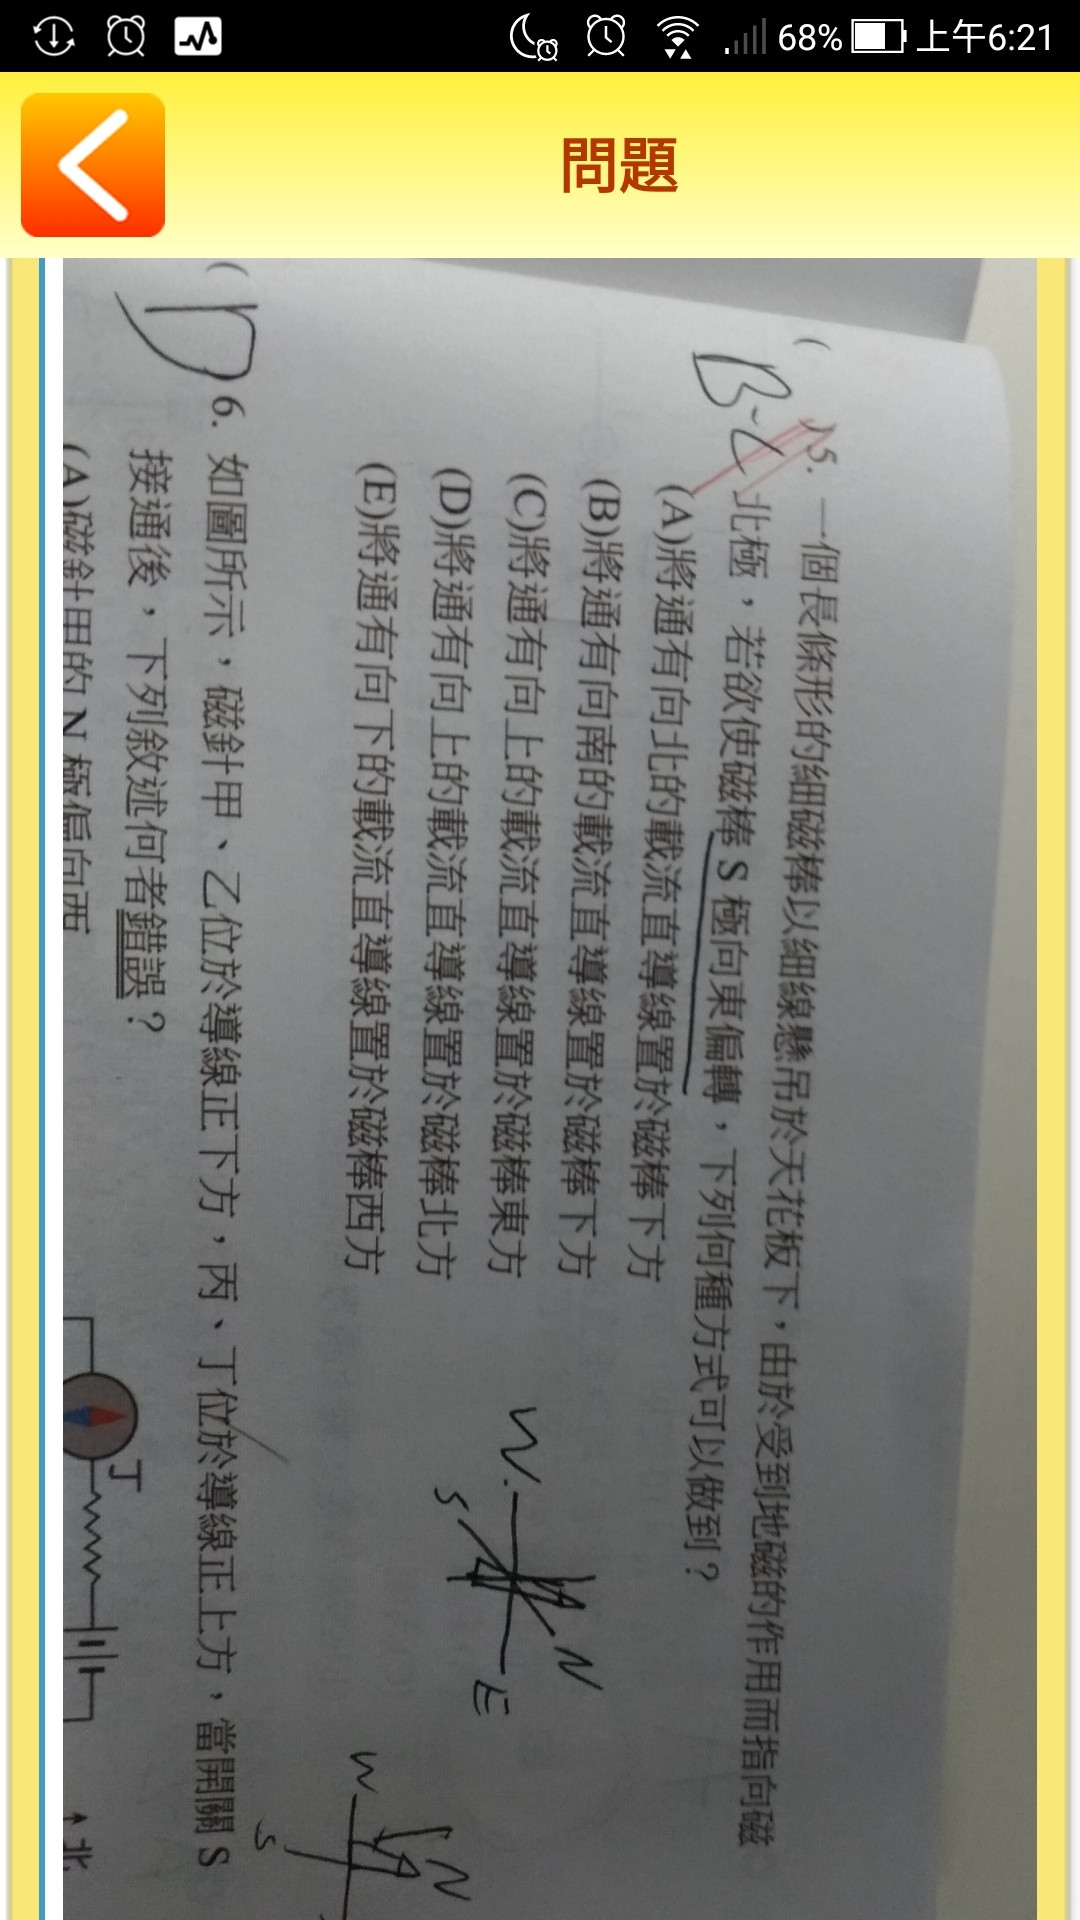 68% 上午6:21
問題
(B.C)5. 一個長條形的細磁棒以細線懸吊於天花板下，由於受到地磁的作用而指向磁
北極，若欲使磁棒 S 極向東偏轉，下列何種方式可以做到？
(A)將通有向北的載流直導線置於磁棒下方
(B)將通有向南的載流直導線置於磁棒下方
(C)將通有向上的載流直導線置於磁棒東方
(D)將通有向上的載流直導線置於磁棒北方
(E)將通有向下的載流直導線置於磁棒西方
W
S
N
E
(D)6. 如圖所示，磁針甲、乙位於導線正下方，丙、丁位於導線正上方，當開關 S
接通後，下列敘述何者錯誤？
(A)磁針甲的 N 極偏向西
丁
北
W
S
N